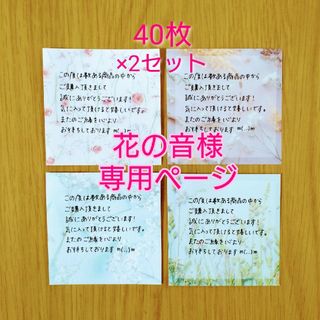 40枚
×2セット
この度は数ある商品の中から
ご購入頂きまして
誠にありがとうございます!
気に入って頂けると嬉しいです。
またのご縁を心より
お待ちしております m(..)m
この度は数ある商品の中から
ご購入頂きまして
誠にありがとうございます!
気に入って頂けると嬉しいです。
またのご縁を心より
お待ちしております m(..)m
花の音様
専用ページ
この度は数ある商品の中から
ご購入頂きまして
誠にありがとうございます!
気に入って頂けると嬉しいです。
またのご縁を心より
お待ちしております m(..)m
この度は数ある商品の中から
ご購入頂きまして
誠にありがとうございます!
気に入って頂けると嬉しいです。
またのご縁を心より
お待ちしております m(..)m